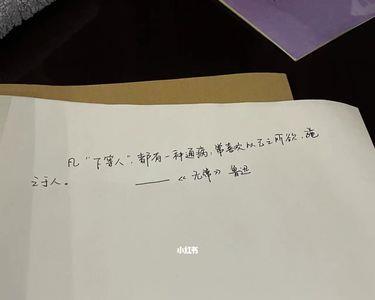 凡“下等人”,都有一种通病:常喜欢以己之所欲,施
之于人。
——《无常》鲁迅
小红书